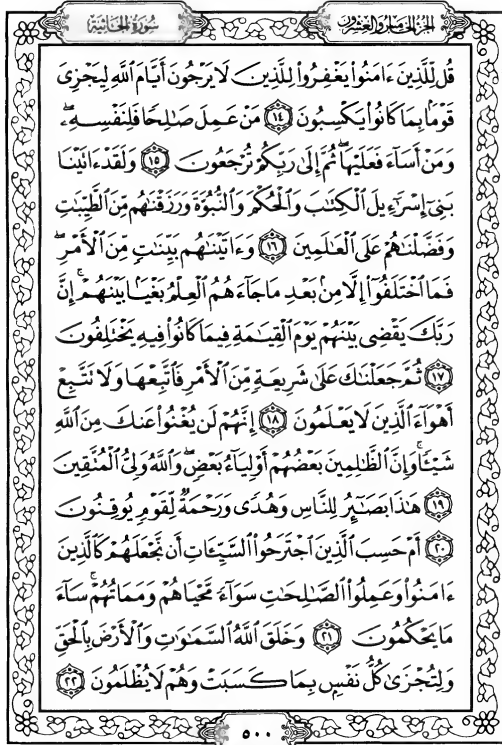 سُورَةُ الجَاثِيَةِ
الجُزْءُ الخَامِسُ وَالعِشْرُونَ
قُل لِّلَّذِينَ ءَامَنُوا۟ يَغْفِرُوا۟ لِلَّذِينَ لَا يَرْجُونَ أَيَّامَ ٱللَّهِ لِيَجْزِىَ
قَوْمًۢا بِمَا كَانُوا۟ يَكْسِبُونَ ١٤ مَنْ عَمِلَ صَٰلِحًا فَلِنَفْسِهِۦ ۖ
وَمَنْ أَسَآءَ فَعَلَيْهَا ۖ ثُمَّ إِلَىٰ رَبِّكُمْ تُرْجَعُونَ ١٥ وَلَقَدْ ءَاتَيْنَا
بَنِىٓ إِسْرَٰٓءِيلَ ٱلْكِتَٰبَ وَٱلْحُكْمَ وَٱلنُّبُوَّةَ وَرَزَقْنَٰهُم مِّنَ ٱلطَّيِّبَٰتِ
وَفَضَّلْنَٰهُمْ عَلَى ٱلْعَٰلَمِينَ ١٦ وَءَاتَيْنَٰهُم بَيِّنَٰتٍ مِّنَ ٱلْأَمْرِ ۖ
فَمَا ٱخْتَلَفُوٓا۟ إِلَّا مِنۢ بَعْدِ مَا جَآءَهُمُ ٱلْعِلْمُ بَغْيًۢا بَيْنَهُمْ ۚ إِنَّ
رَبَّكَ يَقْضِى بَيْنَهُمْ يَوْمَ ٱلْقِيَٰمَةِ فِيمَا كَانُوا۟ فِيهِ يَخْتَلِفُونَ
١٧ ثُمَّ جَعَلْنَٰكَ عَلَىٰ شَرِيعَةٍ مِّنَ ٱلْأَمْرِ فَٱتَّبِعْهَا وَلَا تَتَّبِعْ
أَهْوَآءَ ٱلَّذِينَ لَا يَعْلَمُونَ ١٨ إِنَّهُمْ لَن يُغْنُوا۟ عَنكَ مِنَ ٱللَّهِ
شَيْـًٔا ۚ وَإِنَّ ٱلظَّٰلِمِينَ بَعْضُهُمْ أَوْلِيَآءُ بَعْضٍ ۖ وَٱللَّهُ وَلِىُّ ٱلْمُتَّقِينَ
١٩ هَٰذَا بَصَٰٓئِرُ لِلنَّاسِ وَهُدًى وَرَحْمَةٌ لِّقَوْمٍ يُوقِنُونَ
٢٠ أَمْ حَسِبَ ٱلَّذِينَ ٱجْتَرَحُوا۟ ٱلسَّيِّـَٔاتِ أَن نَّجْعَلَهُمْ كَٱلَّذِينَ
ءَامَنُوا۟ وَعَمِلُوا۟ ٱلصَّٰلِحَٰتِ سَوَآءً مَّحْيَاهُمْ وَمَمَاتُهُمْ ۚ سَآءَ
مَا يَحْكُمُونَ ٢١ وَخَلَقَ ٱللَّهُ ٱلسَّمَٰوَٰتِ وَٱلْأَرْضَ بِٱلْحَقِّ
وَلِتُجْزَىٰ كُلُّ نَفْسٍۭ بِمَا كَسَبَتْ وَهُمْ لَا يُظْلَمُونَ ٢٢
٥٠٠